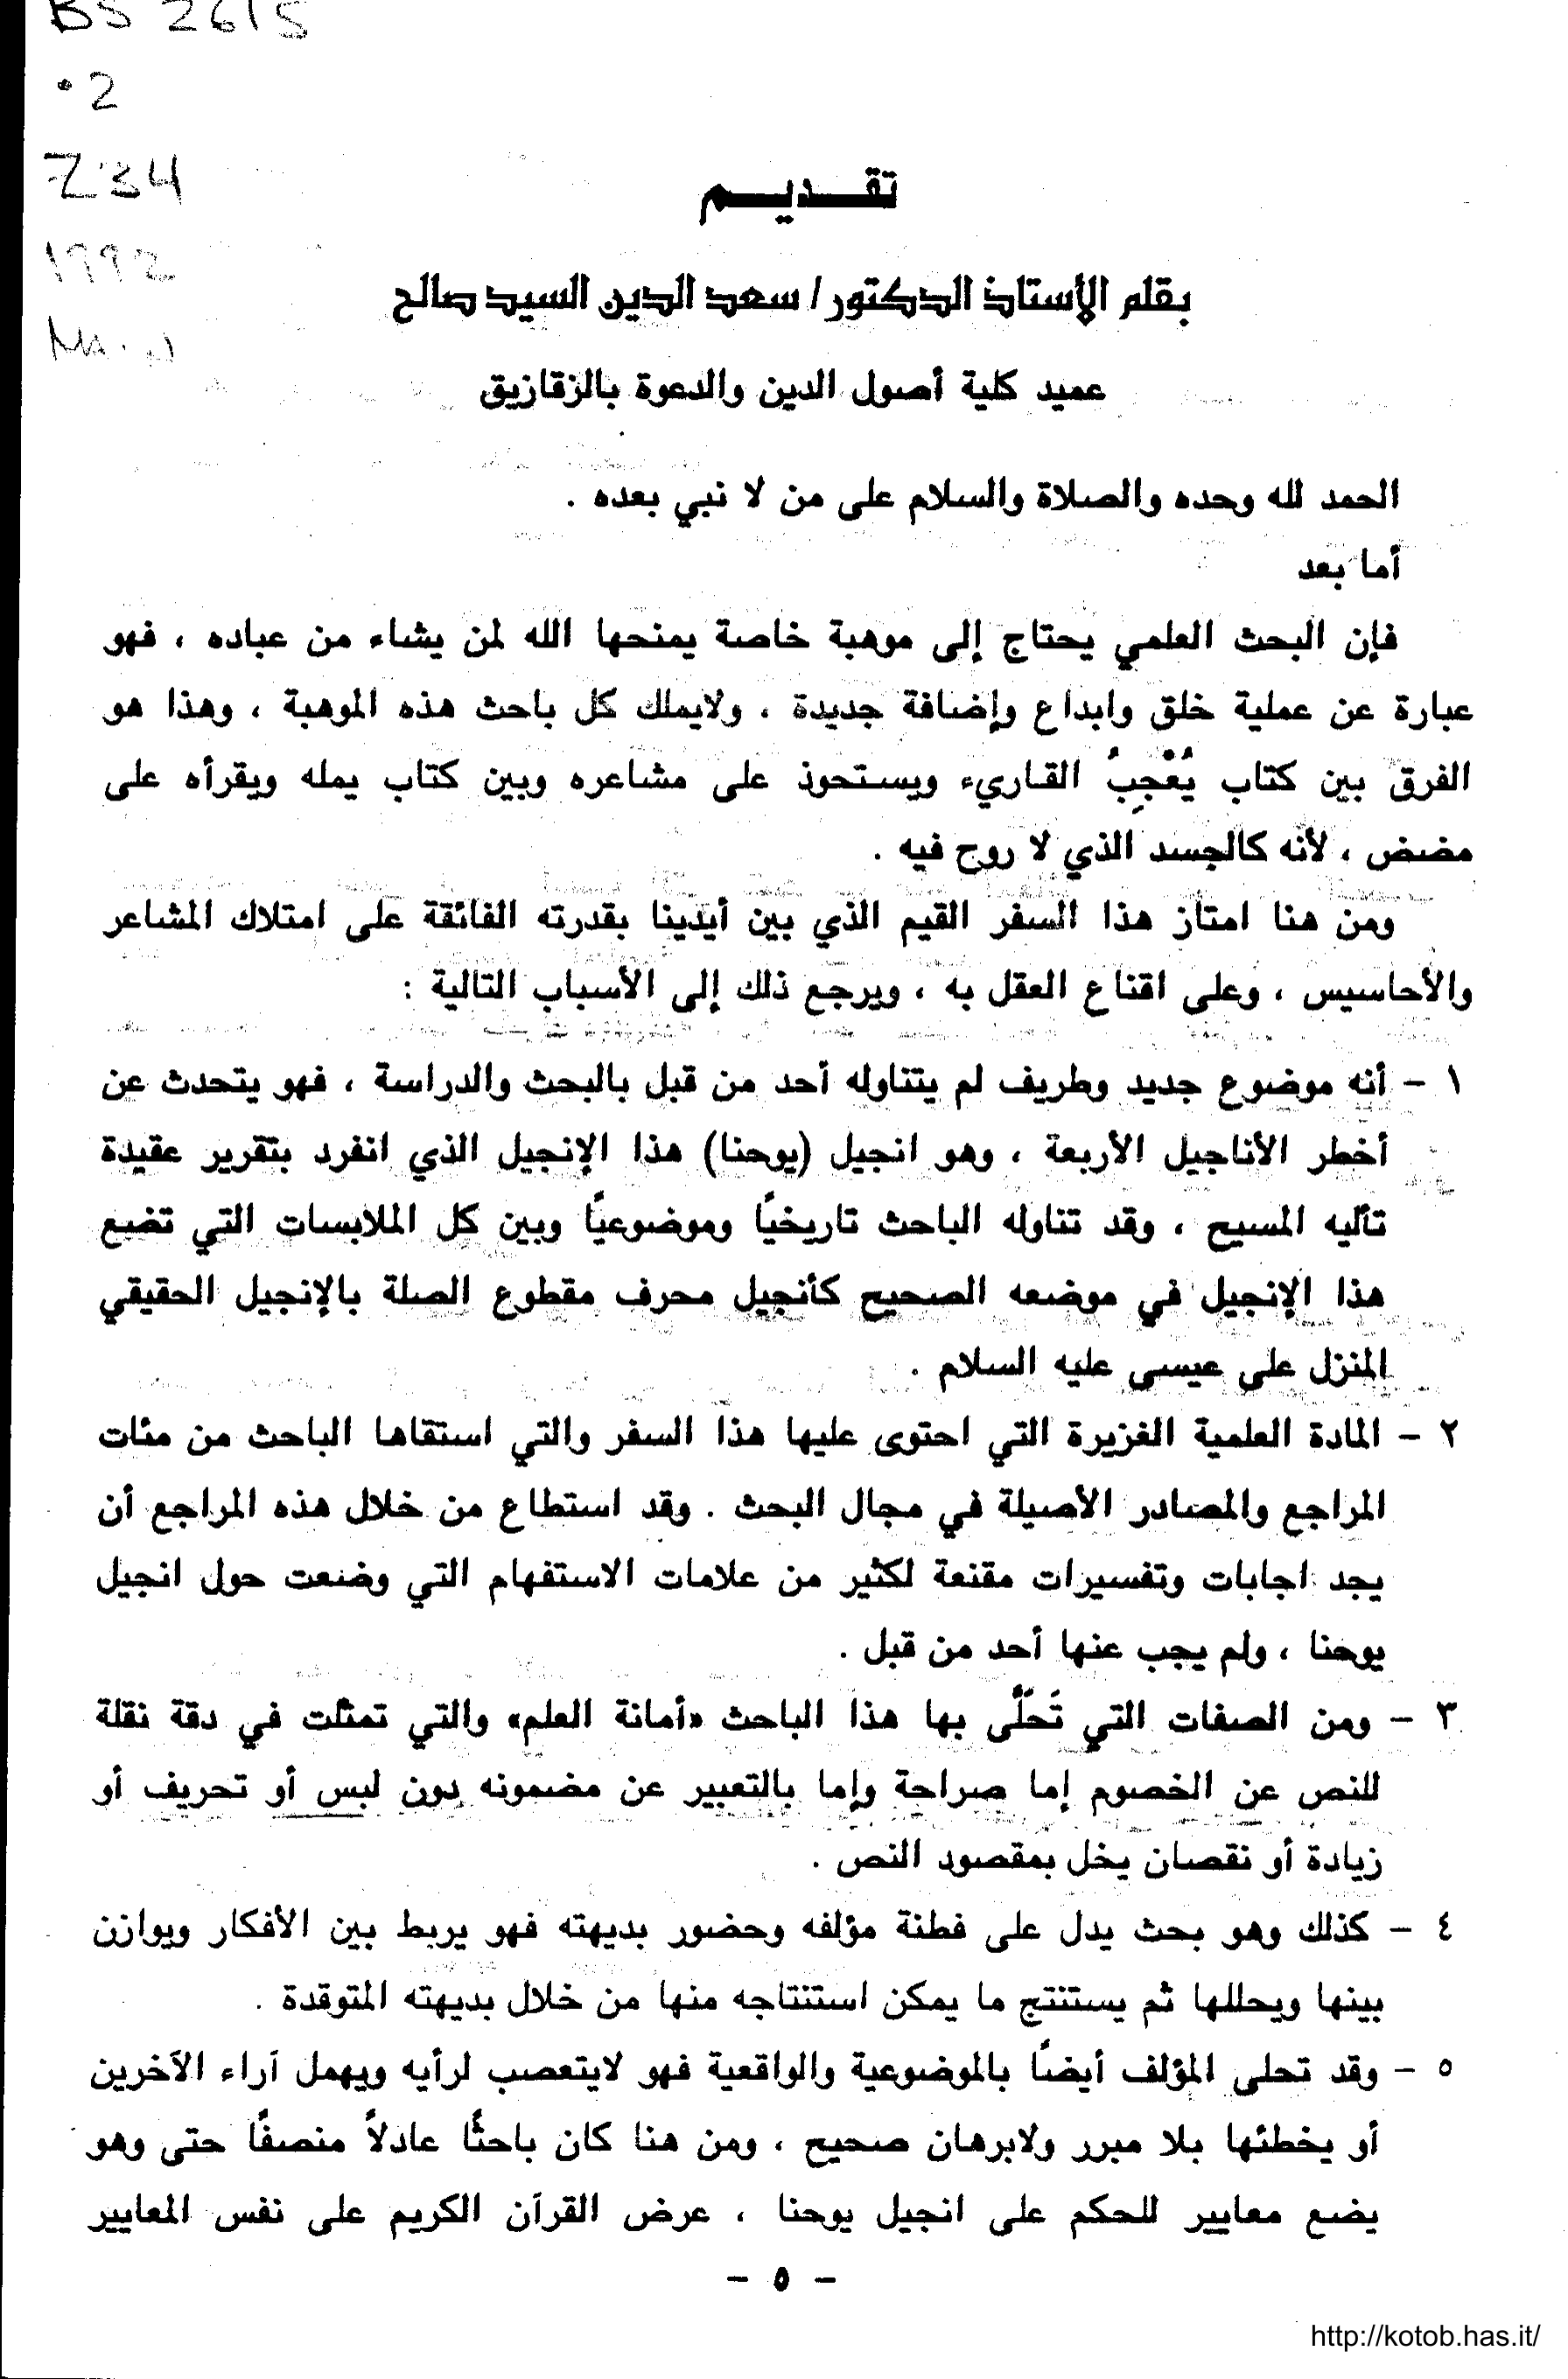 BS 2615
.2
Z34
1992
Main
تقديم
بقلم الأستاذ الدكتور / سعد الدين السيد صالح
عميد كلية أصول الدين والدعوة بالزقازيق
الحمد لله وحده والصلاة والسلام على من لا نبي بعده .
أما بعد
فإن البحث العلمي يحتاج إلى موهبة خاصة يمنحها الله لمن يشاء من عباده ، فهو
عبارة عن عملية خلق وابداع وإضافة جديدة ، ولايملك كل باحث هذه الموهبة ، وهذا هو
الفرق بين كتاب يُعْجِبُ القاريء ويستحوذ على مشاعره وبين كتاب يمله ويقرأه على
مضض ، لأنه كالجسد الذي لا روح فيه .
ومن هنا امتاز هذا السفر القيم الذي بين أيدينا بقدرته الفائقة على امتلاك المشاعر
والأحاسيس ، وعلى اقناع العقل به ، ويرجع ذلك إلى الأسباب التالية :
١ - أنه موضوع جديد وطريف لم يتناوله أحد من قبل بالبحث والدراسة ، فهو يتحدث عن
أخطر الأناجيل الأربعة ، وهو انجيل (يوحنا) هذا الإنجيل الذي انفرد بتقرير عقيدة
تأليه المسيح ، وقد تناوله الباحث تاريخيًا وموضوعيًا وبين كل الملابسات التي تضع
هذا الإنجيل في موضعه الصحيح كأنجيل محرف مقطوع الصلة بالإنجيل الحقيقي
المنزل على عيسى عليه السلام .
٢ - المادة العلمية الغزيرة التي احتوى عليها هذا السفر والتي استقاها الباحث من مئات
المراجع والمصادر الأصيلة في مجال البحث . وقد استطاع من خلال هذه المراجع أن
يجد اجابات وتفسيرات مقنعة لكثير من علامات الاستفهام التي وضعت حول انجيل
يوحنا ، ولم يجب عنها أحد من قبل .
٣ - ومن الصفات التي تَحَلَّى بها هذا الباحث «أمانة العلم» والتي تمثلت في دقة نقلة
للنص عن الخصوم إما صراحة وإما بالتعبير عن مضمونه بدون لبس أو تحريف أو
زيادة أو نقصان يخل بمقصود النص .
٤ - كذلك وهو بحث يدل على فطنة مؤلفه وحضور بديهته فهو يربط بين الأفكار ويوازن
بينها ويحللها ثم يستنتج ما يمكن استنتاجه منها من خلال بديهته المتوقدة .
٥ - وقد تحلى المؤلف أيضًا بالموضوعية والواقعية فهو لايتعصب لرأيه ويهمل آراء الآخرين
أو يخطئها بلا مبرر ولابرهان صحيح ، ومن هنا كان باحثًا عادلاً منصفًا حتى وهو
يضع معايير للحكم على انجيل يوحنا ، عرض القرآن الكريم على نفس المعايير
- ٥ -
http://kotob.has.it/